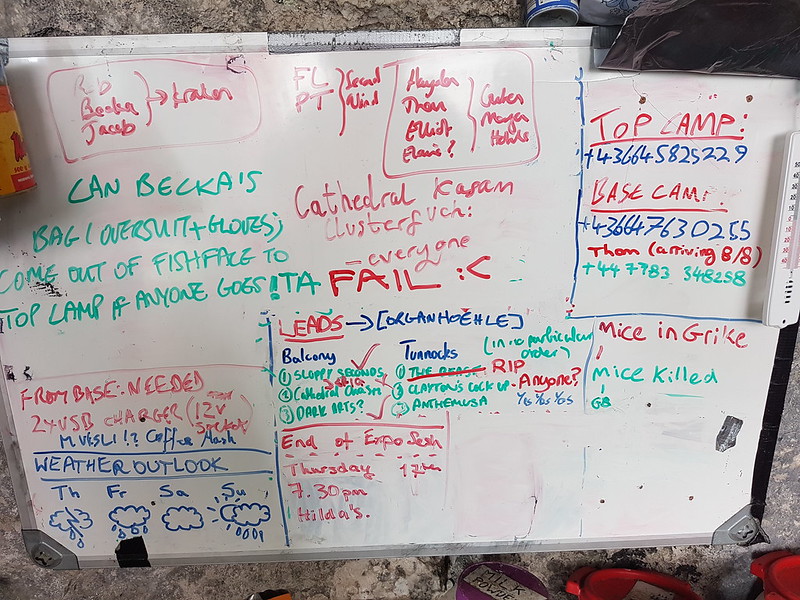 Becka
Jacob
Kraken
FL
PT
Second
Wind
Hayden
Thom
Elliott
TOP CAMP:
+436645825229
BASE CAMP:
+436647630255
Thom (arriving 8/8)
+44 7783 348258
CAN BECKA'S
BAG (OVERSUIT+GLOVES)
COME OUT OF FISHFACE TO
TOP CAMP IF ANYONE GOES! TA
Cathedral Kasam
Clusterfuck:
- everyone
FAIL :<
LEADS → [ORGANHOEHLE]
(in no particular order)
Balcony
① SLOPPY SECONDS
② Cathedral Chasm
③ DARK ARTS?
Tunnocks
① THE BEAST RIP
② CLAYTON'S COCK UP - Anyone?
③ ANTHEMUSA Yis Yis Yis
Mice in Grike
Mice Killed
FROM BASE: NEEDED
2x USB CHARGER (12V
MUESLI!? Coffee Hash
WEATHER OUTLOOK
Th Fr Sa Su
End of Expo Sesh
Thursday 17th
7.30pm
Hilda's.
MILK
POWDER